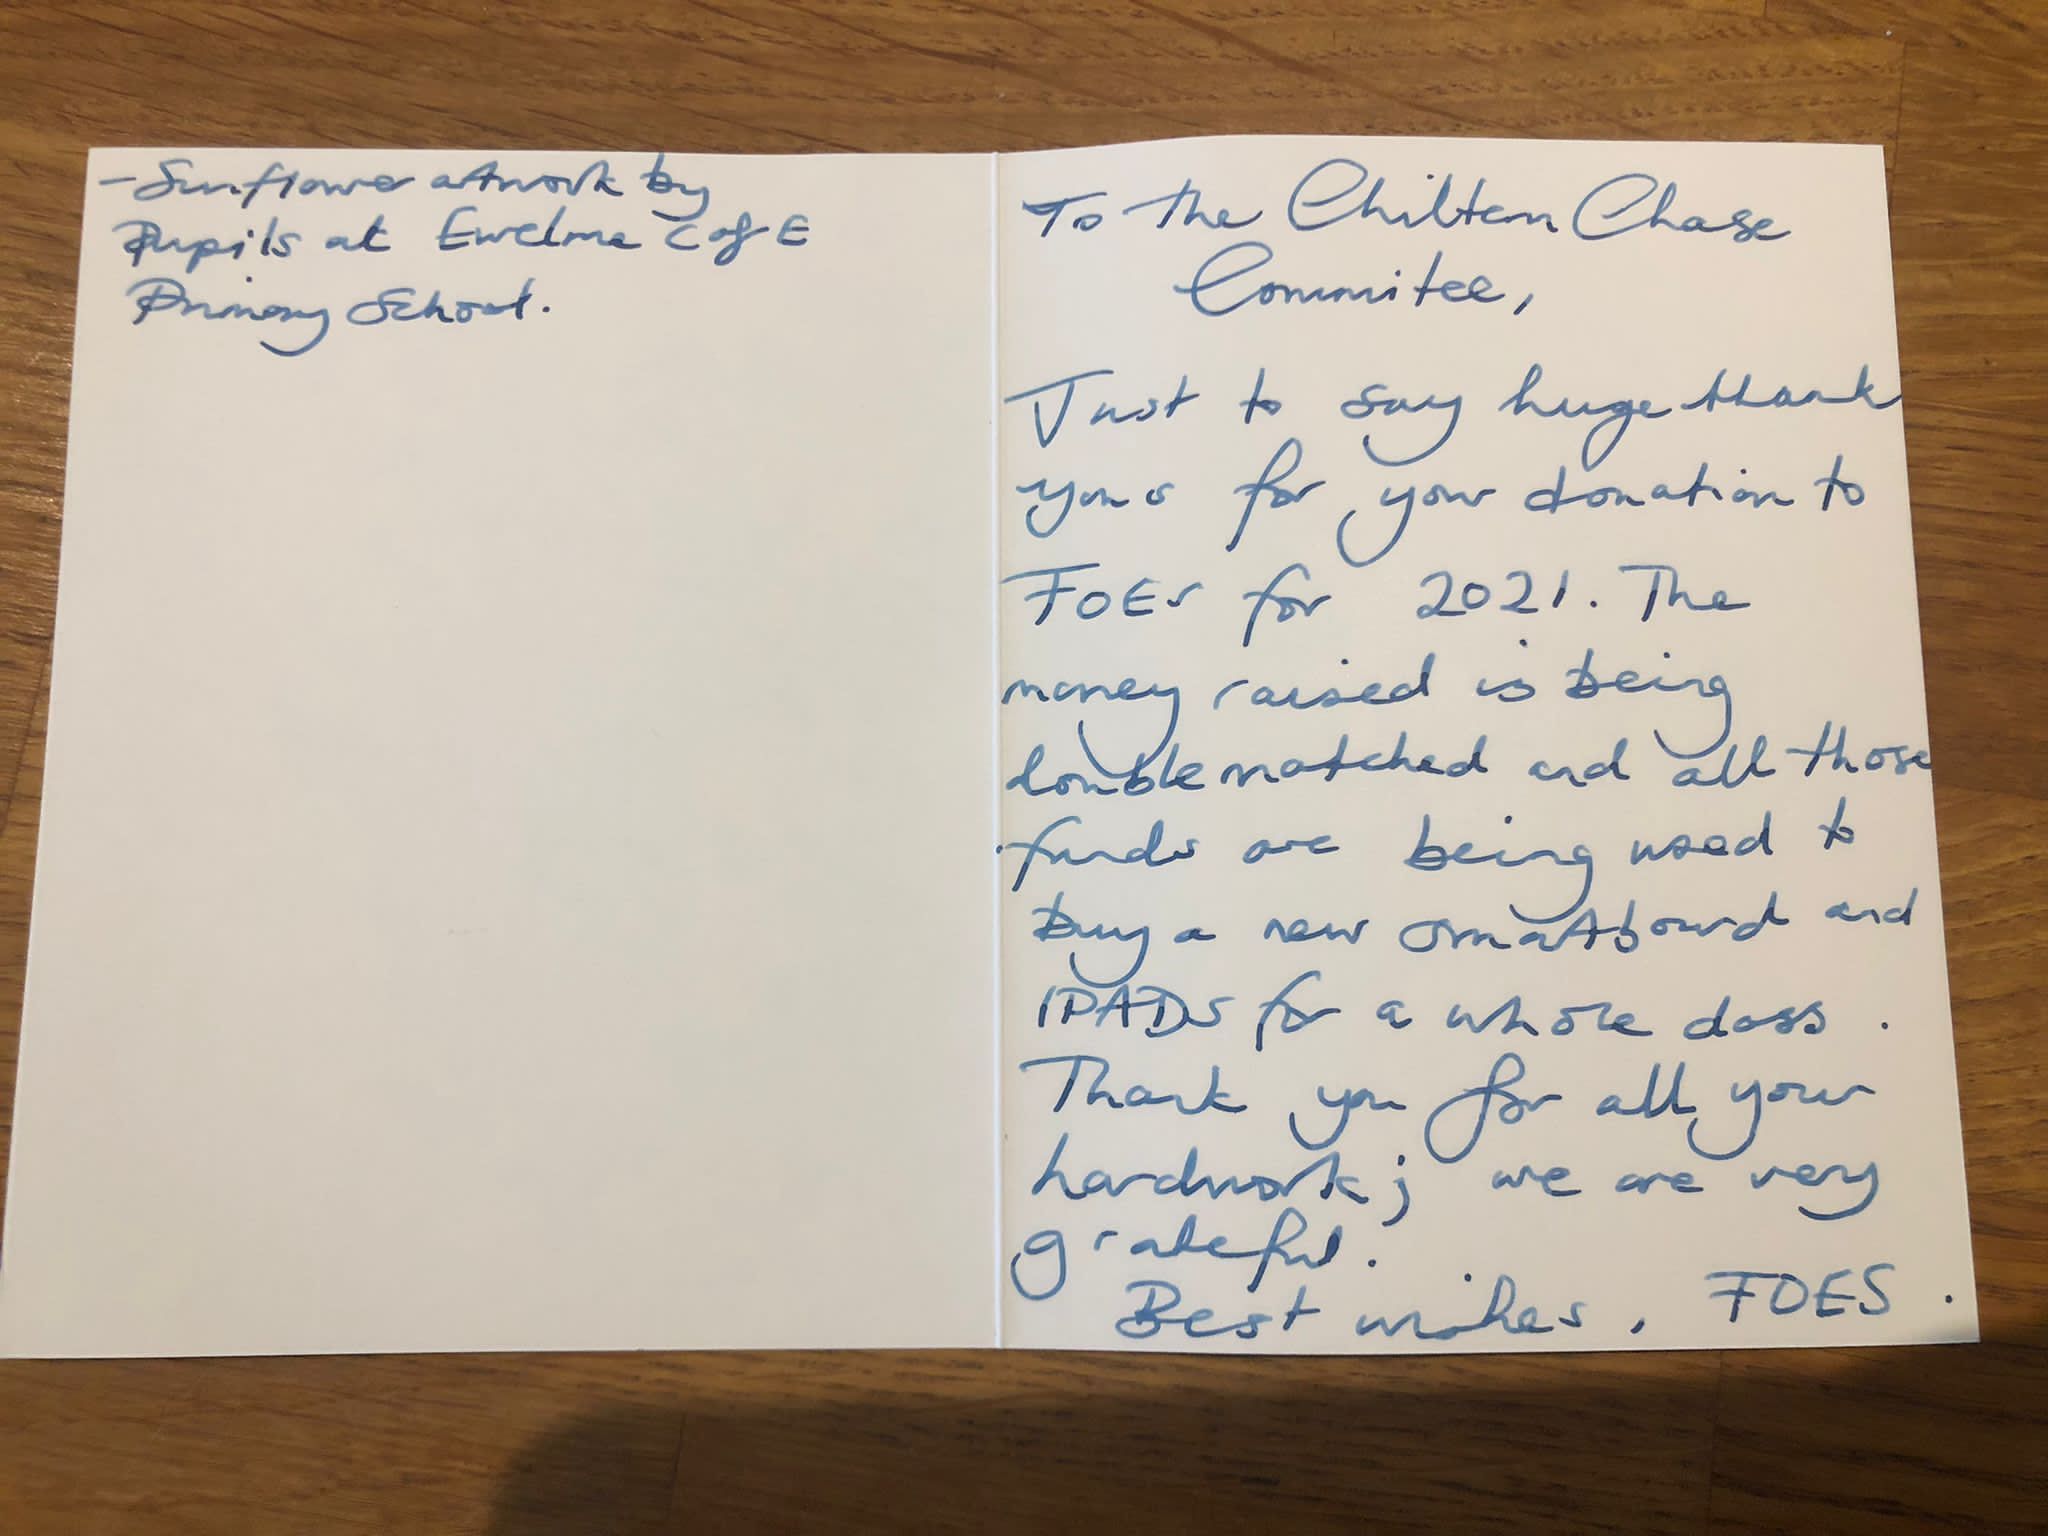 - Sunflower artwork by
Pupils at Ewelme C of E
Primary School.
To the Chiltern Chase
Commitee,
Just to say huge thank
yous for your donation to
FOEs for 2021. The
money raised is being
double matched and all those
funds are being used to
buy a new smartboard and
IPADs for a whole class.
Thank you for all your
hardwork; we are very
grateful.
Best wishes, FOES.